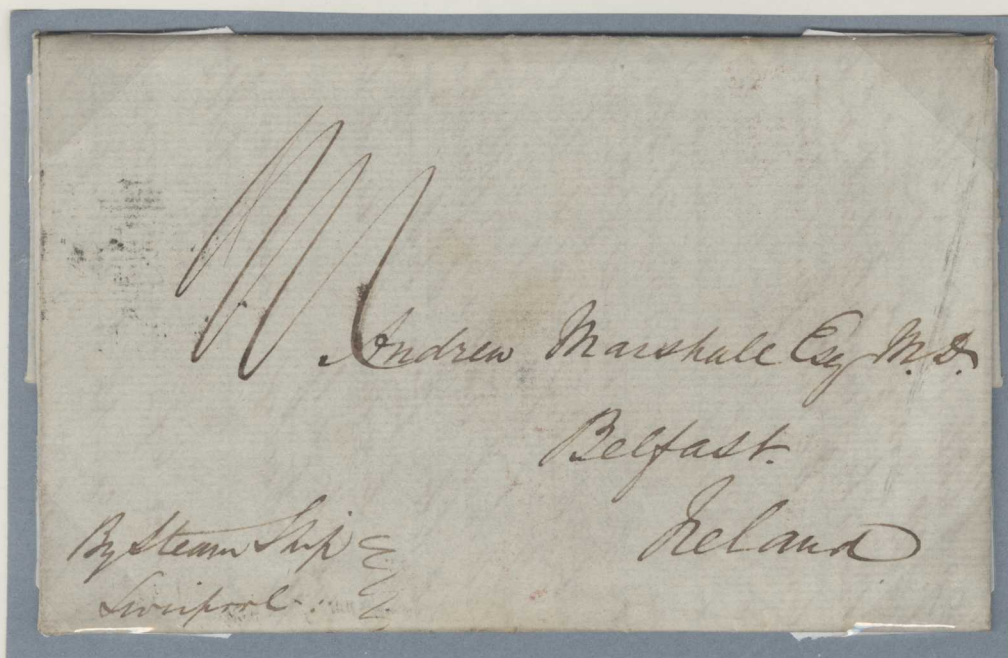 Andrew Marshall Esq M.D.
Belfast.
Ireland
By Steam Ship
Liverpool